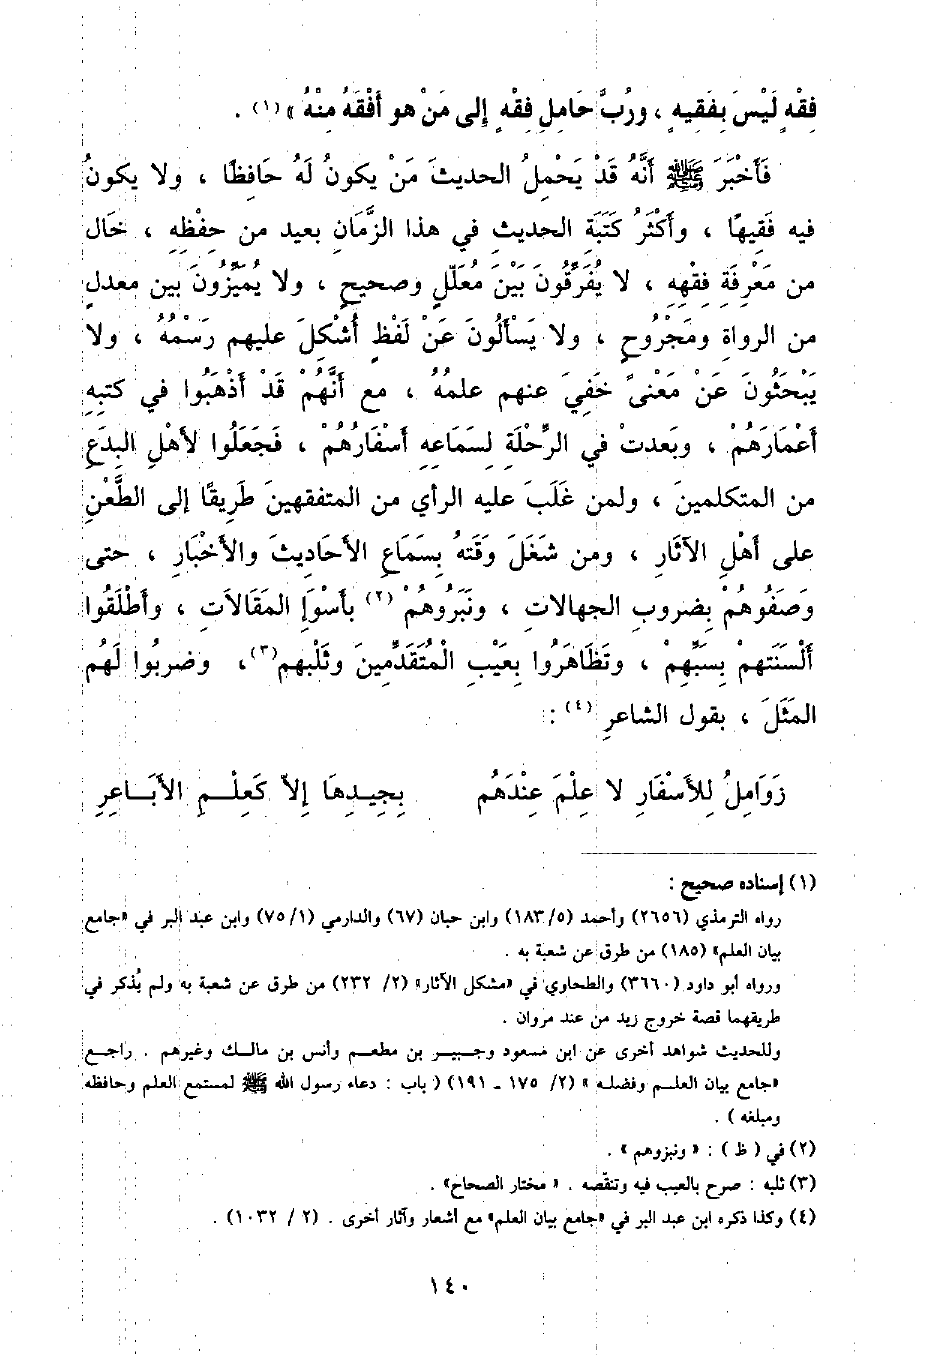 فِقْهٍ لَيْسَ بِفَقِيهٍ ، ورُبَّ حَامِلِ فِقْهٍ إِلى مَنْ هو أَفْقَهُ مِنْهُ » (١) .
فَأَخْبَرَ ﷺ أَنَّهُ قَدْ يَحْمِلُ الحديثَ مَنْ يكونُ لَهُ حَافِظًا ، ولا يكونُ
فيه فَقِيهًا ، وأَكْثَرُ كَتَبَةِ الحديث في هذا الزَّمَانِ بعيد من حِفْظِهِ ، خَال
من مَعْرِفَةِ فِقْهِهِ ، لا يُفَرِّقُونَ بَيْنَ مُعَلَّلٍ وصحيحٍ ، ولا يُمَيِّزُونَ بين معدلٍ
من الرواةِ ومَجْرُوحٍ ، ولا يَسْأَلُونَ عَنْ لَفْظٍ أَشْكَلَ عليهم رَسْمُهُ ، ولا
يَبْحَثُونَ عَنْ مَعْنىً خَفِيَ عنهم علمُهُ ، مع أَنَّهُمْ قَدْ أَذْهَبُوا في كتبِهِ
أَعْمَارَهُمْ ، وبَعدتْ في الرِّحْلَةِ لِسَمَاعِهِ أَسْفَارُهُمْ ، فَجَعَلُوا لأَهْلِ البِدَعِ
من المتكلمينَ ، ولمن غَلَبَ عليه الرأي من المتفقهينَ طَرِيقًا إلى الطَّعْنِ
على أَهْلِ الآثَارِ ، ومن شَغَلَ وَقْتَهُ بِسَمَاعِ الأَحَاديثَ والأَخْبَارِ ، حتى
وَصَفُوهُمْ بِضروبِ الجهالاتِ ، ونَبَرُوهُمْ (٢) بأَسْوَإِ المَقَالاَتِ ، وأَطْلَقُوا
أَلْسنَتهمْ بِسَبِّهِمْ ، وتَظَاهَرُوا بِعَيْبِ الْمُتَقَدِّمينَ وثَلْبِهم(٣)، وضربُوا لَهُم
المَثَلَ ، بقول الشاعرِ (٤) :
زَوَامِلُ لِلأَسْفَارِ لا عِلْمَ عِنْدَهُم بِجِيـدِهَا إِلاَّ كَعِلْـمِ الأَبَـاعِرِ
(١) إسناده صحيح :
رواه الترمذي (٢٦٥٦) وأحمد (٥/ ١٨٣) وابن حبان (٦٧) والدارمي (١/ ٧٥) وابن عبد البر في «جامع
بيان العلم» (١٨٥) من طرق عن شعبة به .
ورواه أبو داود (٣٦٦٠) والطحاوي في «مشكل الآثار» (٢/ ٢٣٢) من طرق عن شعبة به ولم يُذكر في
طريقهما قصة خروج زيد من عند مروان .
وللحديث شواهد أخرى عن ابن مسعود وجبيـر بن مطعـم وأنس بن مالـك وغيرهم . راجـع
«جامع بيان العلـم وفضلـه» (٢/ ١٧٥ ـ ١٩١) ( باب : دعاء رسول الله ﷺ لمستمع العلم وحافظه
ومبلغه ) .
(٢) في ( ظ ) : « ونبزوهم » .
(٣) ثلبه : صرح بالعيب فيه وتنقّصه . « مختار الصحاح» .
(٤) وكذا ذكره ابن عبد البر في «جامع بيان العلم» مع أشعار وآثار أخرى . (٢ / ١٠٣٢) .
١٤٠